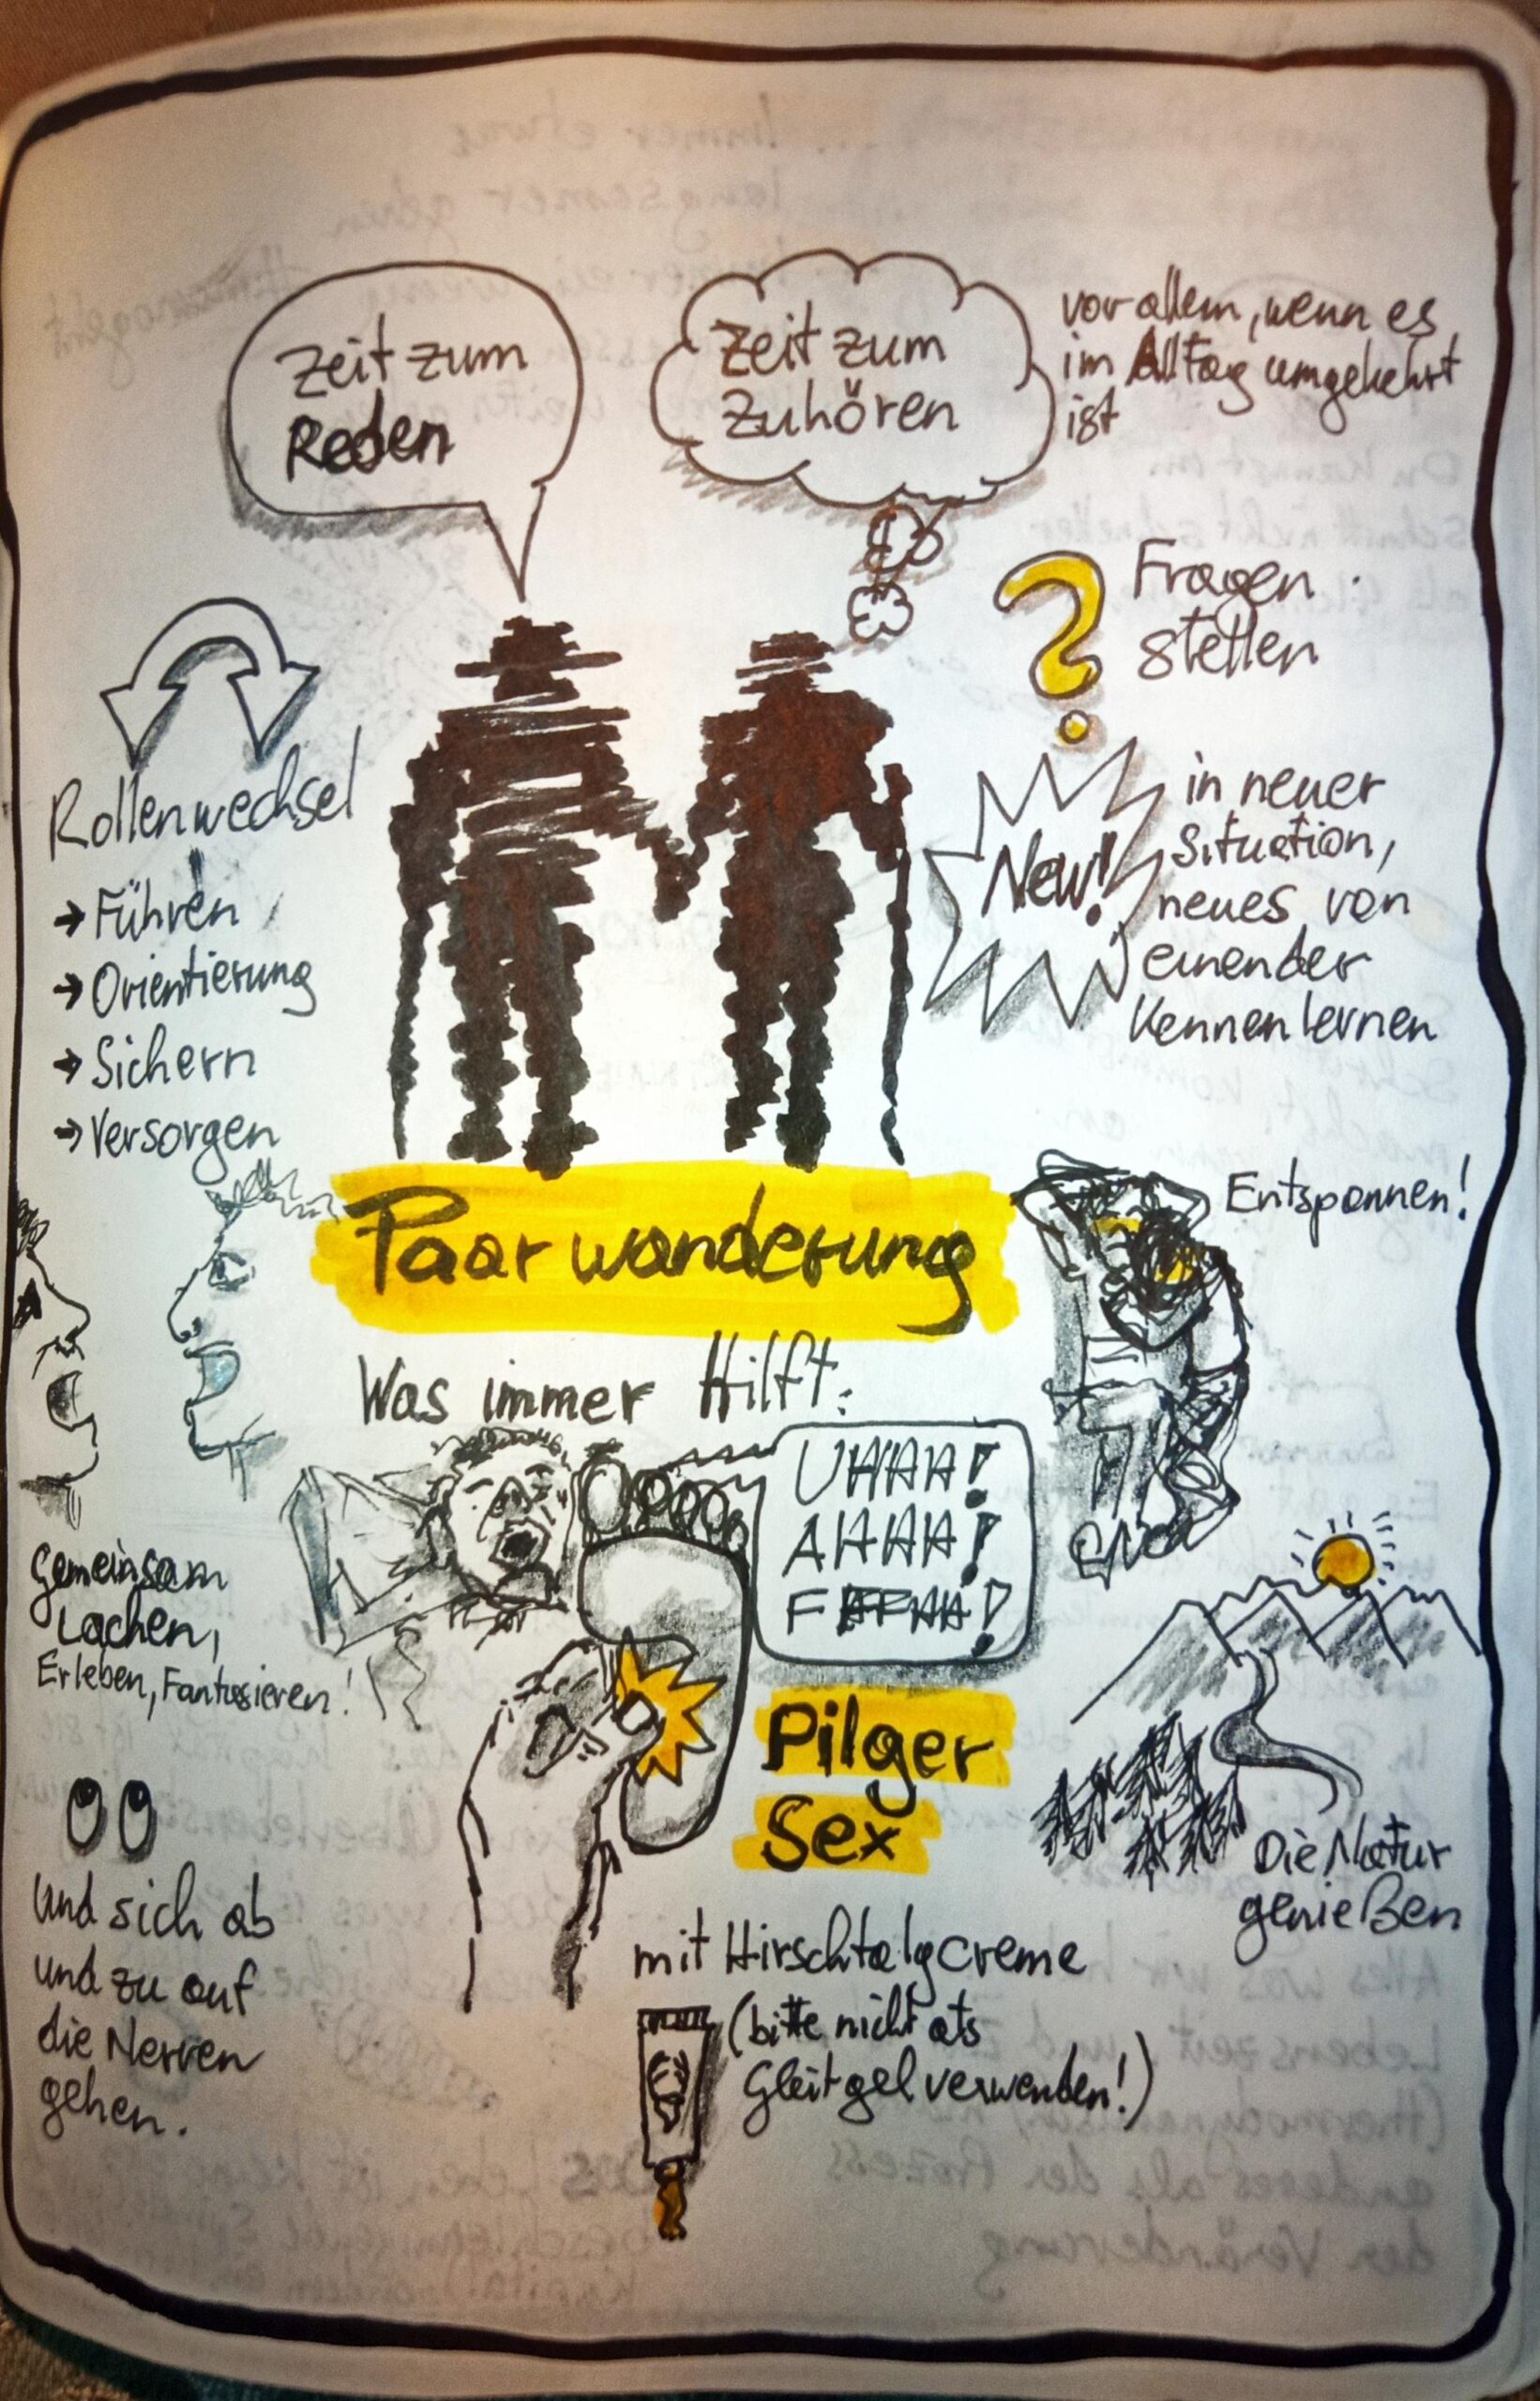 Zeit zum
Reden
Zeit zum
Zuhören
vor allem, wenn es
im Alltag umgekehrt
ist
Fragen
stellen
Rollenwechsel
→ Führen
→ Orientierung
→ Sichern
→ Versorgen
New!
in neuer
Situation,
neues von
einander
kennenlernen
Paarwanderung
Entspannen!
Was immer Hilft:
UHHH!
AHHH!
Gemeinsam
Lachen,
Erleben, Fantasieren!
Pilger
Sex
Die Natur
genießen
und sich ab
und zu auf
die Nerven
gehen.
mit Hirschtalgcreme
(bitte nicht als
Gleitgel verwenden!)